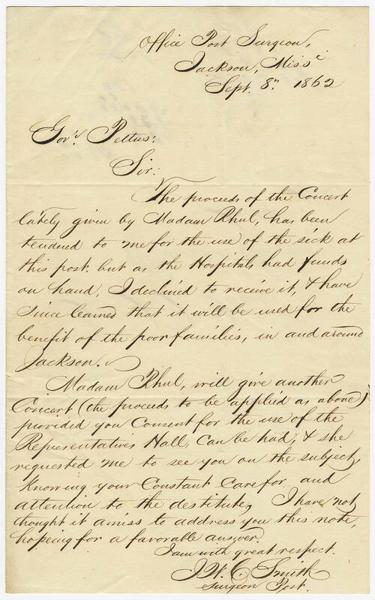 Office Post Surgeon,
Jackson, Miss
Sept. 8" 1862
Gov. Pettus:
Sir:
The proceeds of the Concert
lately given by Madam Rhul, has been
tendred to me for the use of the sick at
this post, but as the Hospitals had funds
on hand, I declined to receive it, & have
since learned that it will be used for the
benefit of the poor families, in and around
Jackson.
Madam Rhul, will give another
Concert (the proceeds to be applied as above)
provided you Consent for the use of the
Representatives Hall, Can be had; & she
requested me to see you on the subject,
Knowing your Constant Care for and
attention to the destitute, I have not
thought it amiss to address you this note,
hoping for a favorable answer.
I am with great respect.
W. C. Smith
Surgeon Post.